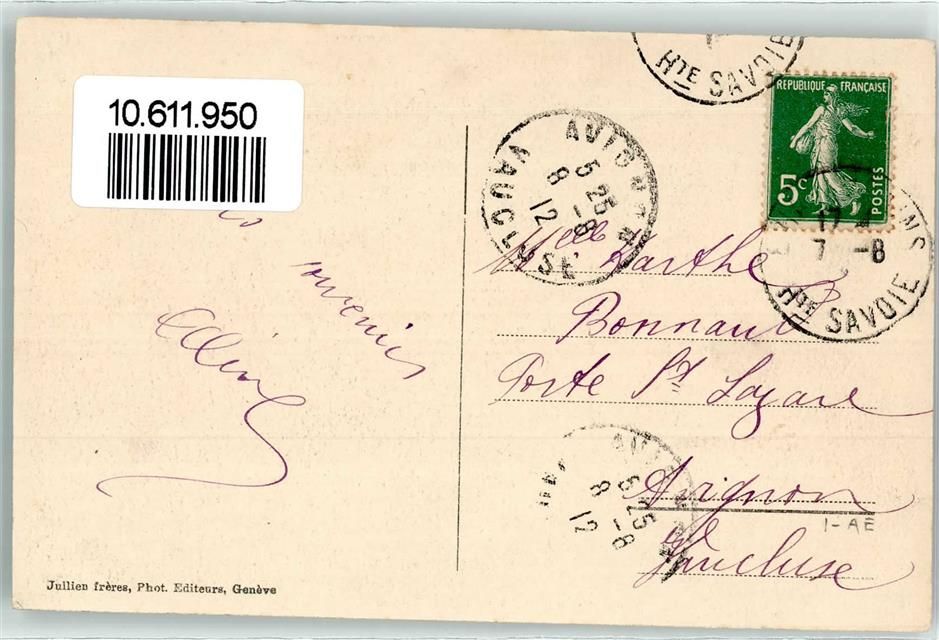 10.611.950
HTE SAVOIE
RÉPUBLIQUE FRANÇAISE
5c
POSTES
AVIGNON
5 25
8 -8
12
VAUCLUSE
17
7 -8
HTE SAVOIE
Melle Marthe
Bonnaud
Porte St Lazare
Avignon
Vaucluse
souvenirs
6 25
8 -8
12
1-AE
Jullien frères, Phot. Editeurs, Genève